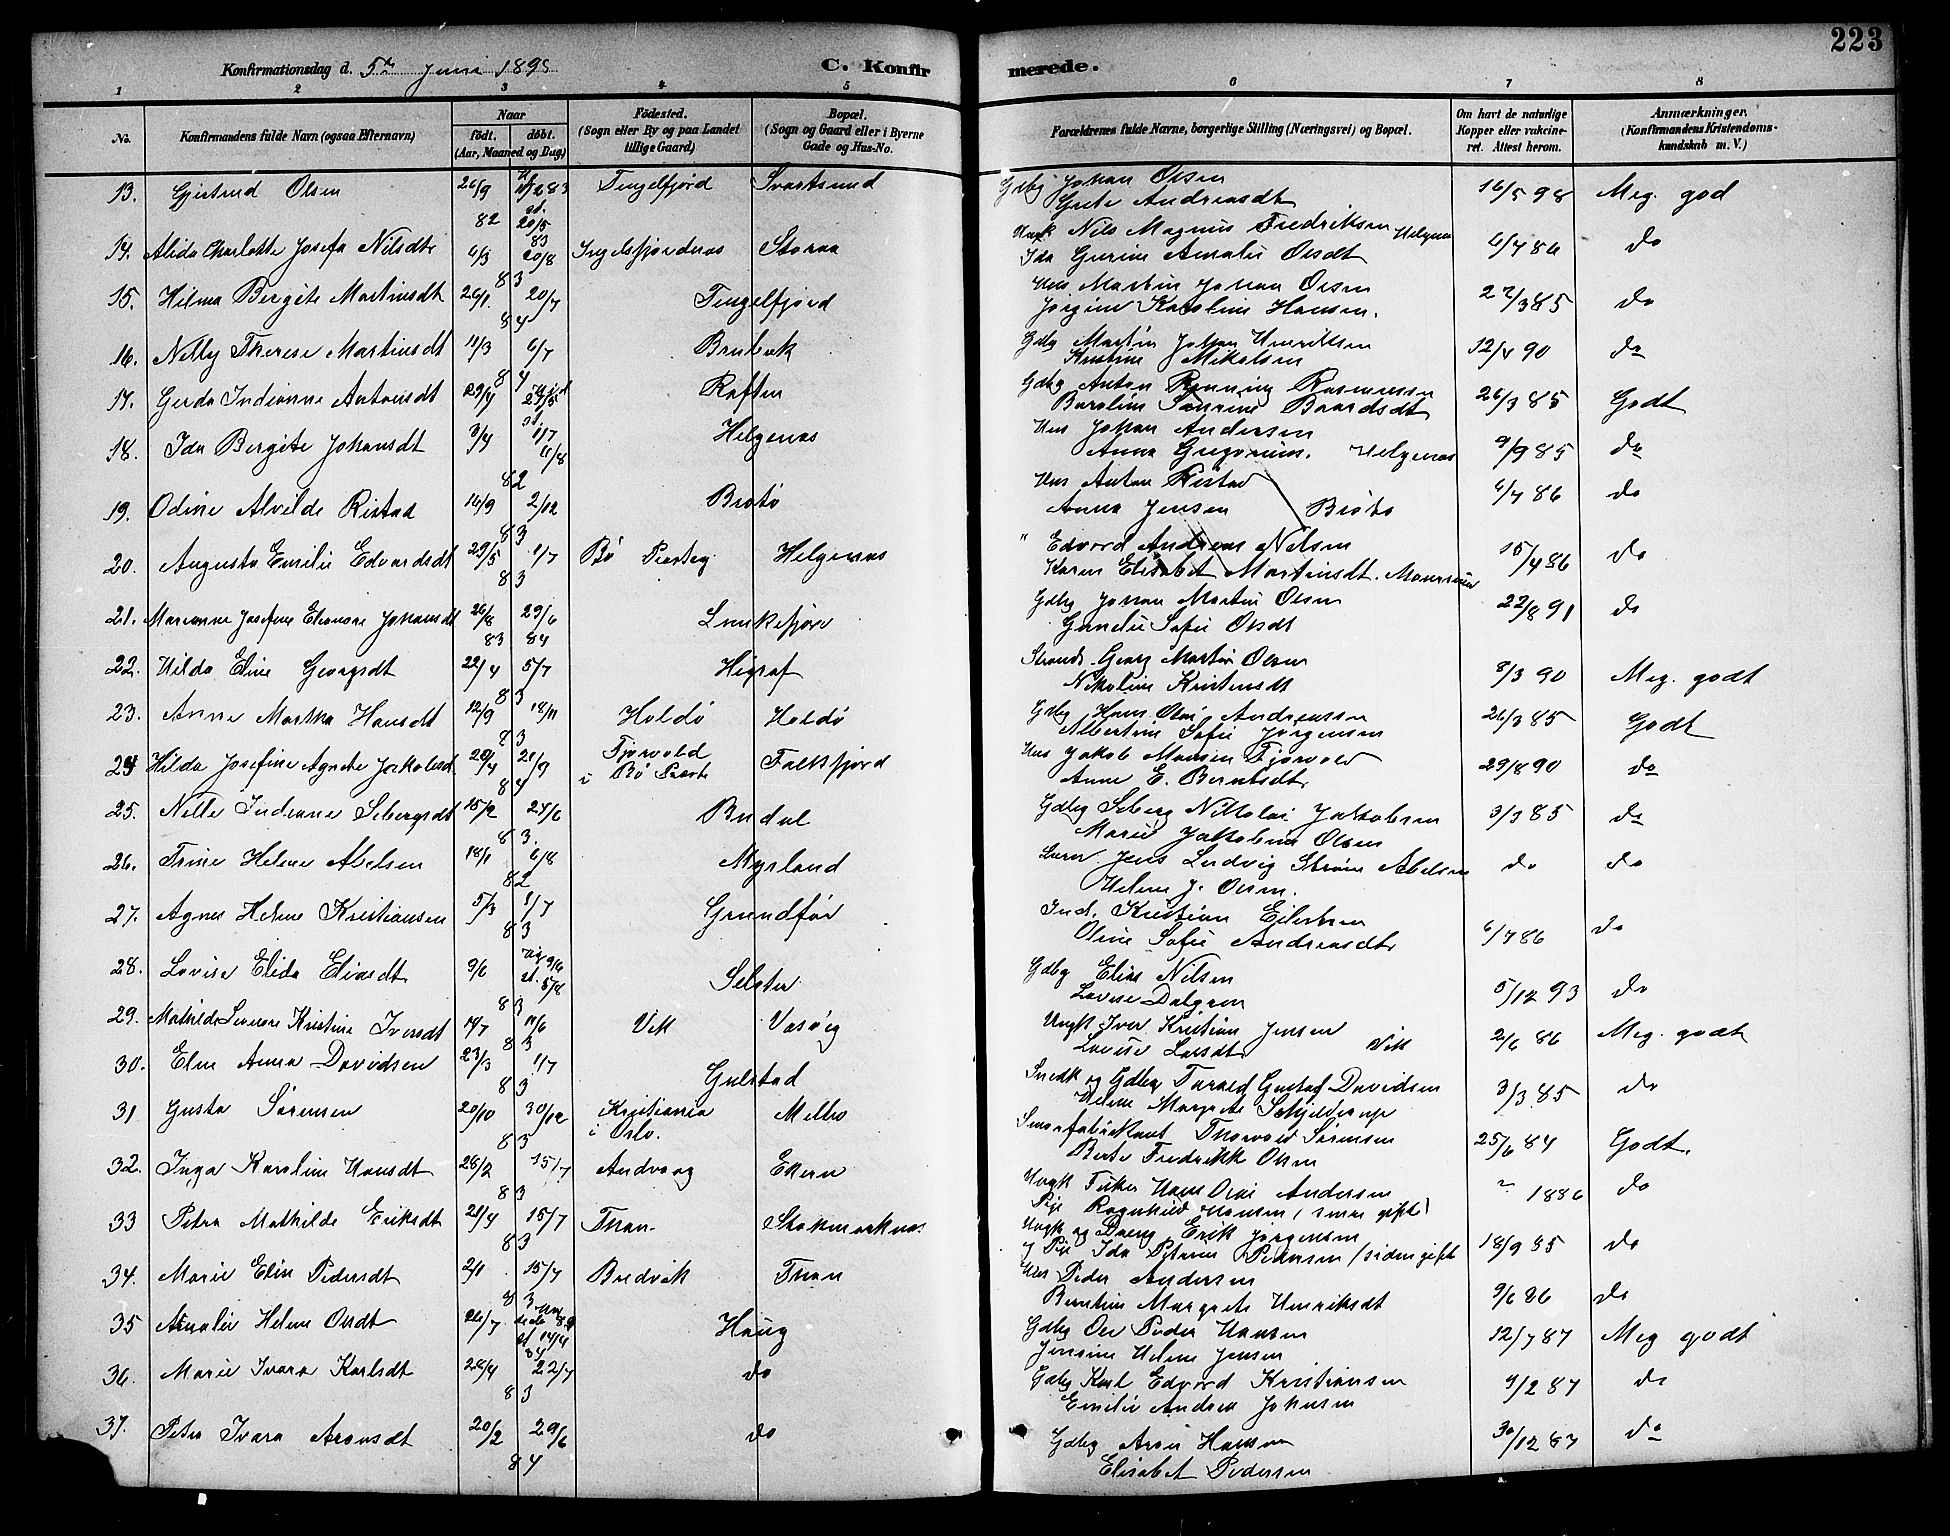 223
Konfirmationsdag d. 5te Juni 1898
C. Konfirmerede.
1 2 3 4 5 6 7 8
No.
Konfirmandens fulde Navn (ogsaa Efternavn)
Naar
födt. döbt.
(Aar, Maaned og Dag)
Födested.
(Sogn eller By og paa Landet
tillige Gaard)
Bopæl.
(Sogn og Gaard eller i Byerne
Gade og Hus-No.
Forældrenes fulde Navne, borgerlige Stilling (Næringsvei) og Bopæl.
Om havt de naturlige
Kopper eller vakcine-
ret. Attest herom.
Anmærkninger.
(Konfirmandens Kristendoms-
kundskab m. V.)
13. Gjertrud Olsen 26/9 82 20/5 83 Tengelfjord Svartsund Gdbg Johan Olsen 16/5 98 Meg. god
Grete Andreasdt
14. Alida Charlotte Josefa Nilsdtr 6/3 20/8 83 Ingelsfjordnes Storaa Nils Magnus Fredriksen Helgenes 6/7 86 do
Ida Gurine Amalie Olsdt
15. Hilma Bergite Martinsdt 26/1 20/7 84 Tengelfjord Hus Martin Johan Olsen 27/3 85 do
Jørgine Karoline Hansen.
16. Nelly Therese Martinsdt 11/3 6/7 84 Brubæk Gdbg Martin Johan Henriksen 12/4 90 do
Kristine Mikalsen
17. Gerda Indianne Antonsdt 29/4 Raften Gdbg Anton Rønning Rasmussen 26/3 85 Godt
Baroline Baardsdt
18. Ida Bergite Johansdt 3/4 1/7 6/8 Helgenes Hus Johan Andersen 9/9 85 do
Anna Gregorius. Helgenes
19. Odine Alvilde Ristad 14/9 82 2/12 Brotø Hus Anton Ristad 6/7 86 do
Anna Jensen Brotø
20. Augusta Emilie Edvardsdt 29/5 83 1/7 Bø Præsteg Helgenes " Edvard Andreas Nilsen 15/4 86 do
Karen Elisabet Martinsdt.
21. Marianne Josefine Eleonore Johansdt 26/8 83 29/6 84 Lunkefjord Gdbg Johan Martin Olsen 22/8 91 do
Gunelie Sofie Olsdt
22. Hilda Eline Georgsdt 22/4 5/7 83 Higraf Strands. Georg Martin Olsen 8/3 90 Meg. godt
Nikoline Kristensdt
23. Anne Martha Hansdt 12/9 18/11 83 Holdø Holdø Gdbg Hans Olai Andreassen 26/3 85 Godt
Albertine Sofie Jørgensen
24 Hilda Josefine Agnete Jakobsdt 20/4 21/9 84 Fjærvold i Bø Præste Falkfjord Hus Jakob Monsen Fjærvold 29/8 90 do
Anne E. Berntsdtr
25. Nelle Indianne Sebergsdt 15/2 24/6 83 Budal Gdbg Seberg Nikolai Jakobsen 3/3 85 do
Marie Jakobine Olsen
26. Trine Helene Abelsen 18/1 6/8 Myrland Jens Ludvig Strøm Abelsen do do
Helene J. Olsen.
27. Agnes Helene Kristiansen 5/3 1/7 83 Grundfør Ind. Kristian Eilertsen 6/7 86 do
Oline Sofie Andreasdtr
28. Lovise Elida Eliasdt 9/6 5/8 83 Selster Gdbg Elias Nilsen 5/12 93 do
Lovise Dalgren
29. Mathilde Leonore Kristine Iversdt 14/6 Vik Vasvig Ungk Iver Kristian Jensen 2/6 86 Meg. godt
Lovise Larsdt Vik
30. Eline Anna Davidsen 23/3 1/7 83 Gulstad Snedk og Gdbg Tarald Gustaf Davidsen 3/3 85 do
Helene Margrete Schjelderup
31 Gusta Sørensen 20/10 30/12 83 Kristiania i Oslo. Melbo Smørfabrikant Thorvald Sørensen 25/6 84 Godt.
Berte Fredrikke Olsen
32. Inga Karoline Hansdt 28/2 15/7 83 Andvaag Ekern Ungk Fisker Hans Olai Andersen ? 1886 do
Pige Ragnhild Hansen (senere gift)
33 Petra Mathilde Eriksdt 21/4 15/7 83 Than. Stokmarknes Ungk og Dreng Erik Jørgensen 18/9 85 do
Pige Ida Petrine Pedersen (siden gift
34. Marie Elise Pedersdt 2/1 15/7 83 Bredvik Than Hus Peder Andersen 9/6 86 do
Berntine Margrete Henriksdt
35 Amalie Helene Olsdt 26/7 14/4 84 Haug Gdbg Ole Peder Hansen 12/7 87 Meg godt
Jensine Helene Jensen
36. Marie Ivara Karlsdt 22/7 83 do Gdbg Karl Edvard Kristiansen 9/2 87 do
Emilie Andrea Johnsen
37. Petra Ivara Aronsdt 20/2 29/6 84 do Gdbg Aron Hansen 30/12 87 do
Elisabet Pedersen